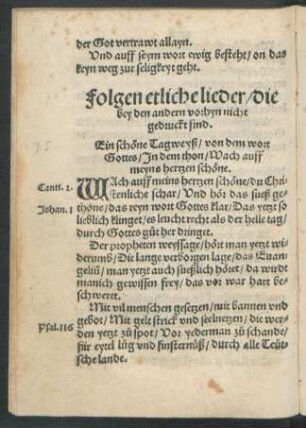 der Got vertrawt allayn.
Vnd auff seym wort ewig besteht/ on das
keyn weg zur seligkeyt geht.
Folgen etliche lieder/ die
bey den andern vorhyn nicht
gedruckt sind.
Ein schöne Tagweyß/ von dem wort
Gottes/ In dem thon/ Wach auff
meyns hertzen schöne.
Canti. 2.
WAch auff meins hertzen schöne/ du Chri
stenliche schar/ Vnd hör das sueß ge
Johan. 1
thöne/ das reyn wort Gottes klar/ Das yetzt so
lieblich klinget/ es leucht recht als der helle tag/
durch Gottes güt her dringet.
Der propheten weyssage/ hört man yetzt wi
derumb/ Die lange verborgen lage/ das Euan
geliū/ man yetzt auch süeßlich höret/ da wirdt
manich gewissen frey/ das vor war hart be-
schweret.
Mit vil menschen gesetzen/ mit bannen vnd
gebot/ Mit gelt strick vnd seelnetzen/ die wer
Psal. 116
den yetzt zů spot/ Vor yederman zů schande/
für eytel lüg vnd finsternüß/ durch alle Teüt
sche lande.